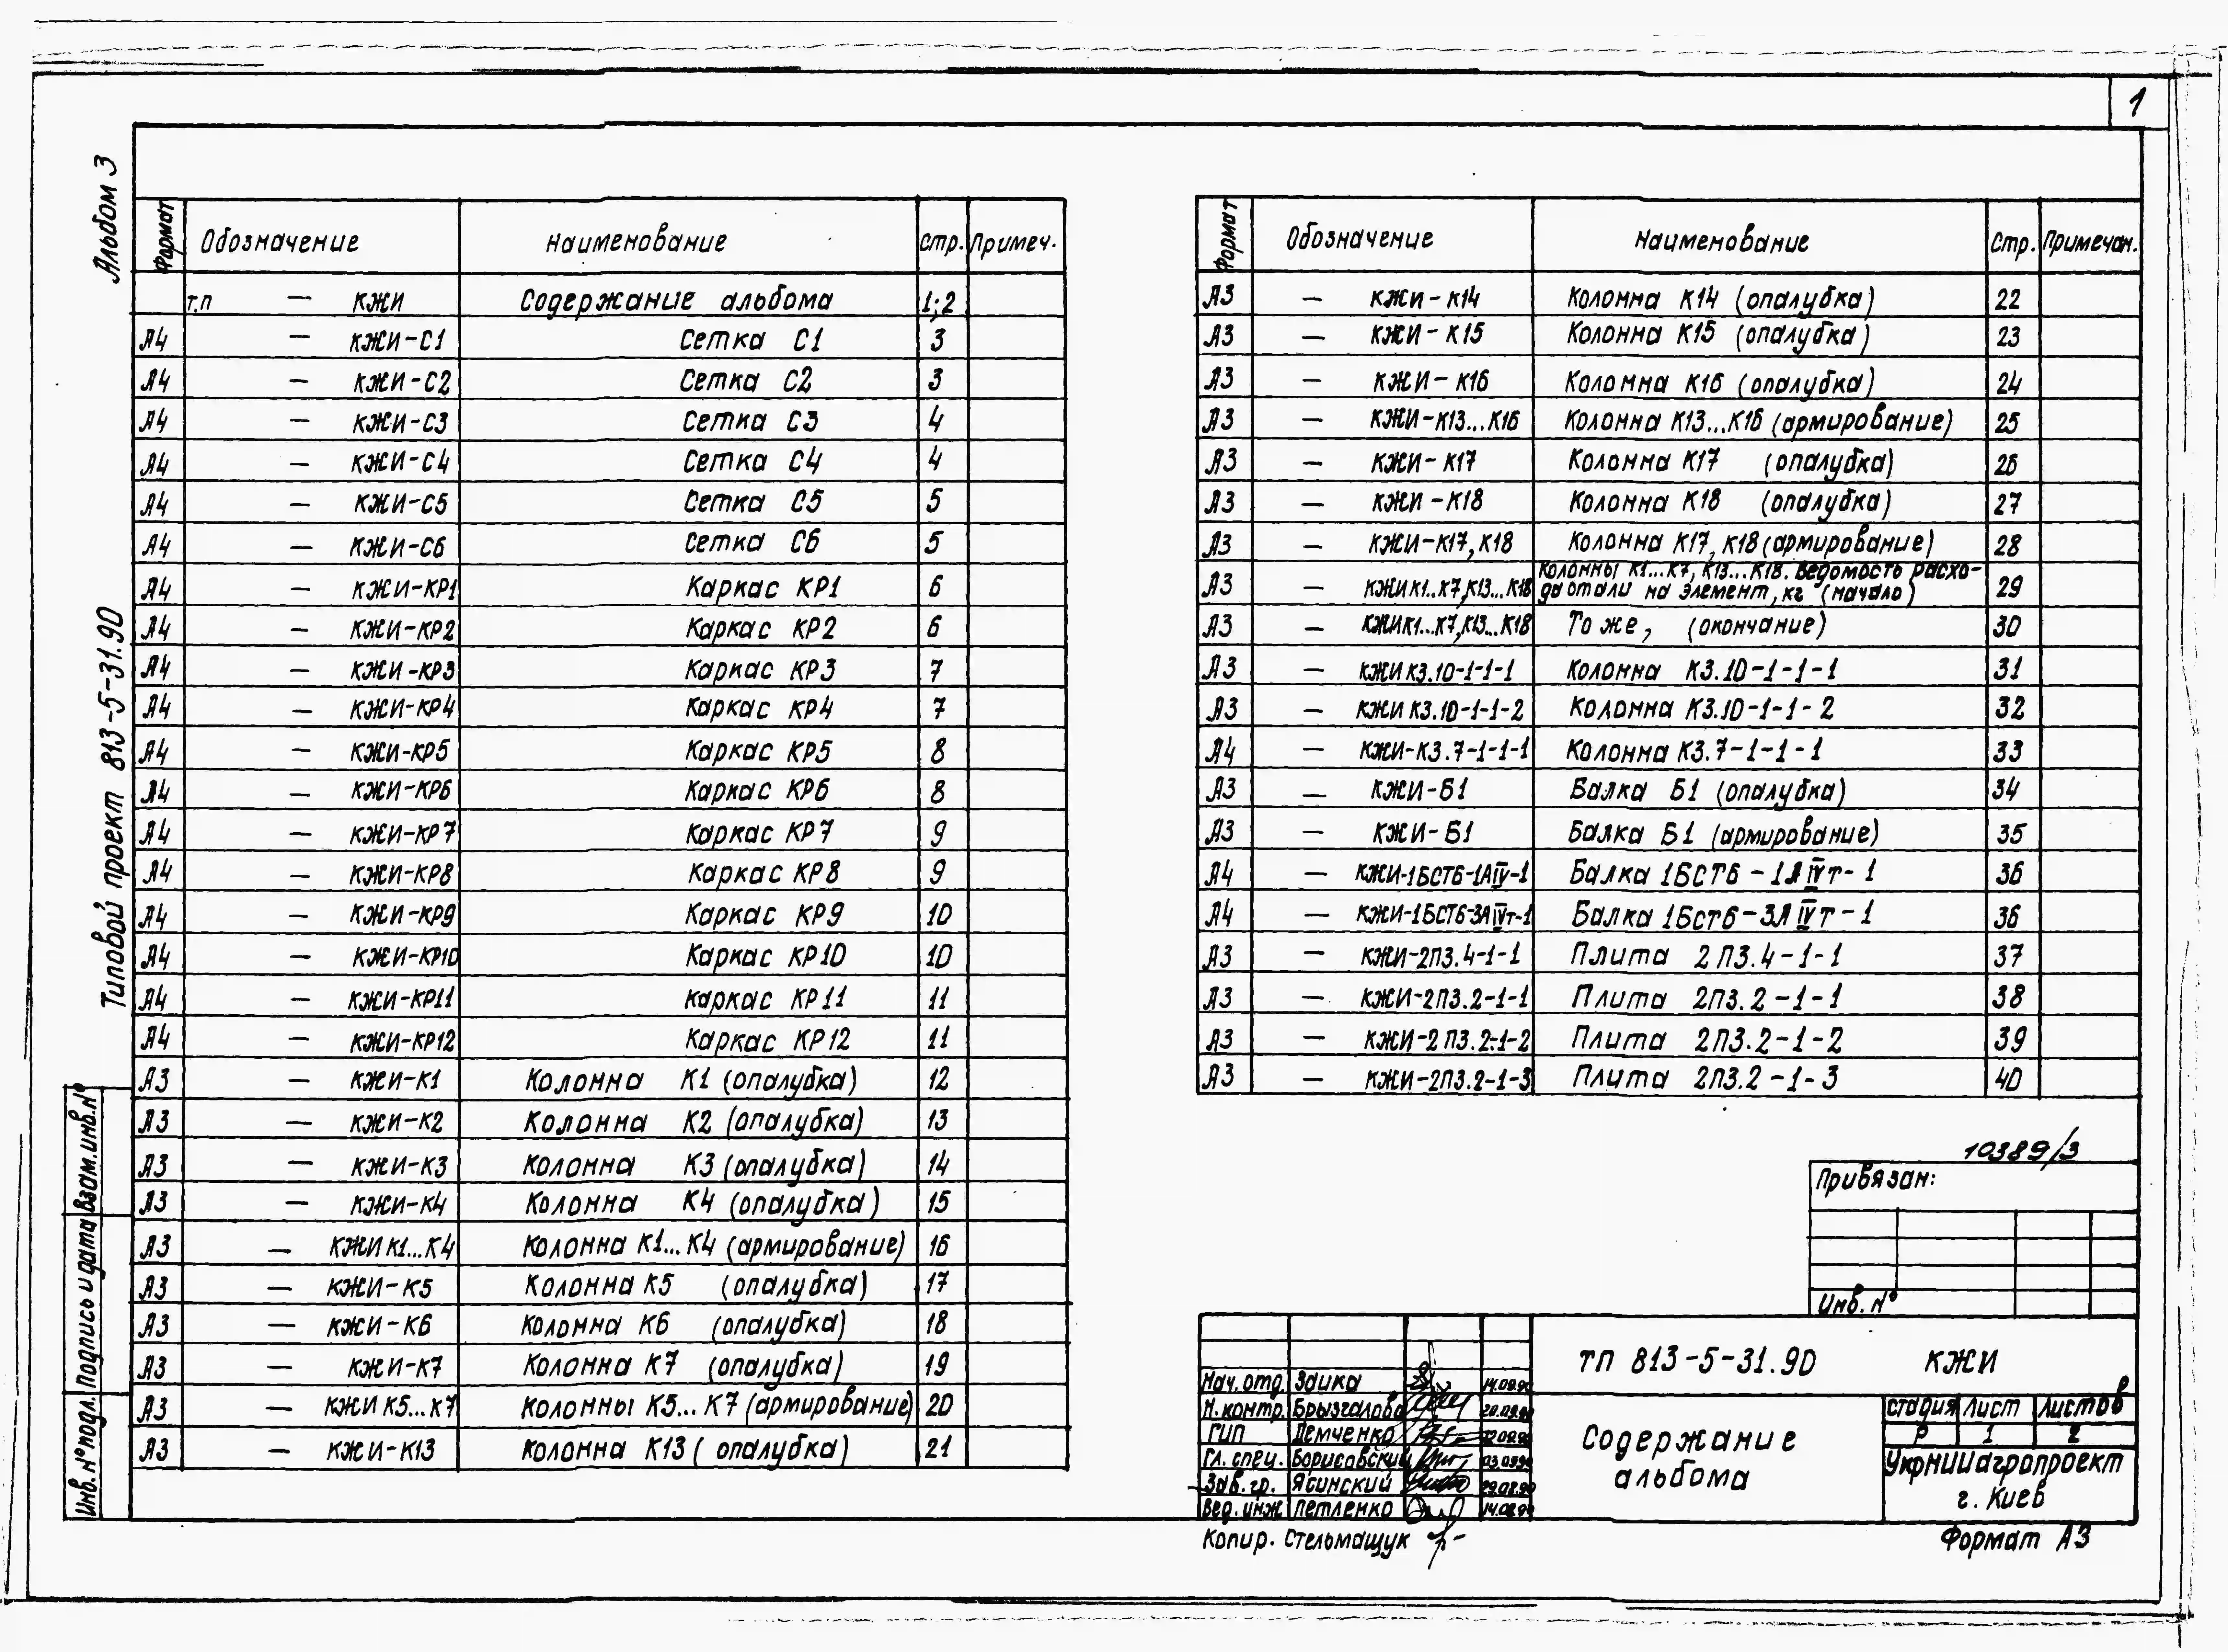 1
Альбом 3
Типовой проект 813-5-31.90
Формат Обозначение Наименование Стр. Примеч.
т.п — КЖИ Содержание альбома 1;2
А4 — КЖИ-С1 Сетка С1 3
А4 — КЖИ-С2 Сетка С2 3
А4 — КЖИ-С3 Сетка С3 4
А4 — КЖИ-С4 Сетка С4 4
А4 — КЖИ-С5 Сетка С5 5
А4 — КЖИ-С6 Сетка С6 5
А4 — КЖИ-КР1 Каркас КР1 6
А4 — КЖИ-КР2 Каркас КР2 6
А4 — КЖИ-КР3 Каркас КР3 7
А4 — КЖИ-КР4 Каркас КР4 7
А4 — КЖИ-КР5 Каркас КР5 8
А4 — КЖИ-КР6 Каркас КР6 8
А4 — КЖИ-КР7 Каркас КР7 9
А4 — КЖИ-КР8 Каркас КР8 9
А4 — КЖИ-КР9 Каркас КР9 10
А4 — КЖИ-КР10 Каркас КР10 10
А4 — КЖИ-КР11 Каркас КР11 11
А4 — КЖИ-КР12 Каркас КР12 11
А3 — КЖИ-К1 Колонна К1 (опалубка) 12
А3 — КЖИ-К2 Колонна К2 (опалубка) 13
А3 — КЖИ-К3 Колонна К3 (опалубка) 14
А3 — КЖИ-К4 Колонна К4 (опалубка) 15
А3 — КЖИ К1...К4 Колонна К1...К4 (армирование) 16
А3 — КЖИ-К5 Колонна К5 (опалубка) 17
А3 — КЖИ-К6 Колонна К6 (опалубка) 18
А3 — КЖИ-К7 Колонна К7 (опалубка) 19
А3 — КЖИ К5...К7 Колонны К5...К7 (армирование) 20
А3 — КЖИ-К13 Колонна К13 (опалубка) 21
Формат Обозначение Наименование Стр. Примечан.
А3 — КЖИ-К14 Колонна К14 (опалубка) 22
А3 — КЖИ-К15 Колонна К15 (опалубка) 23
А3 — КЖИ-К16 Колонна К16 (опалубка) 24
А3 — КЖИ-К13...К16 Колонна К13...К16 (армирование) 25
А3 — КЖИ-К17 Колонна К17 (опалубка) 26
А3 — КЖИ-К18 Колонна К18 (опалубка) 27
А3 — КЖИ-К17, К18 Колонна К17, К18 (армирование) 28
А3 — КЖИ К1..К7, К13...К18 Колонны К1...К7, К13...К18. Ведомость расхо-
да стали на элемент, кг (начало) 29
А3 — КЖИ К1...К7, К13...К18 То же, (окончание) 30
А3 — КЖИ К3.10-1-1-1 Колонна К3.10-1-1-1 31
А3 — КЖИ К3.10-1-1-2 Колонна К3.10-1-1-2 32
А4 — КЖИ-К3.7-1-1-1 Колонна К3.7-1-1-1 33
А3 — КЖИ-Б1 Балка Б1 (опалубка) 34
А3 — КЖИ-Б1 Балка Б1 (армирование) 35
А4 — КЖИ-1БСТ6-1АIV-1 Балка 1БСТ6-1АIVт-1 36
А4 — КЖИ-1БСТ6-3АIVт-1 Балка 1Бст6-3АIVт-1 36
А3 — КЖИ-2П3.4-1-1 Плита 2П3.4-1-1 37
А3 — КЖИ-2П3.2-1-1 Плита 2П3.2-1-1 38
А3 — КЖИ-2П3.2-1-2 Плита 2П3.2-1-2 39
А3 — КЖИ-2П3.2-1-3 Плита 2П3.2-1-3 40
10389/3
Привязан:
Инв. №
ТП 813-5-31.90 КЖИ
Нач. отд. Заика 14.09.90
Н. контр. Брызгалова 20.09.90
ГИП Демченко 12.09.90
Гл. спец. Борисовский 03.09.90
Зав. гр. Ясинский 29.08.90
Вед. инж Петленко 14.08.90
Содержание
альбома
Стадия Лист Листов
Р 1 2
УкрНИИагропроект
г. Киев
Копир. Стельмащук
Формат А3
Взам. инв. №
Подпись и дата
Инв. № подл.